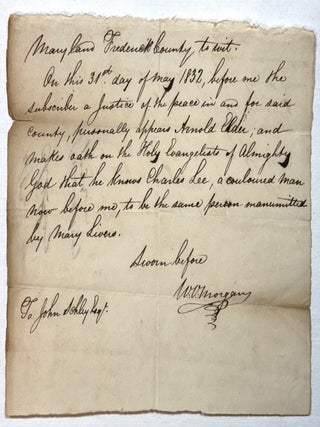 Maryland Frederick County, to wit.
On this 31st. day of may 1832, before me the
subscriber a Justice of the peace in and for said
county, personally appears Arnold Elder; and
makes oath on the Holy Evangelists of Almighty
God that he knows Charles Lee, a couloured man
now before me, to be the same person manumitted
by Mary Livers.
Sworn before
W. V. Morgan
To John Schley Esqr.